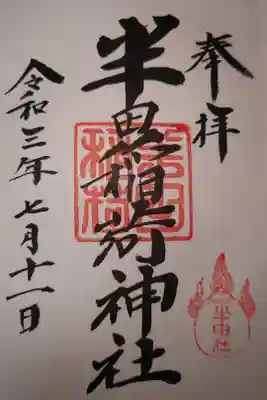 奉拝
半田稲荷神社
令和三年七月十一日
半田社